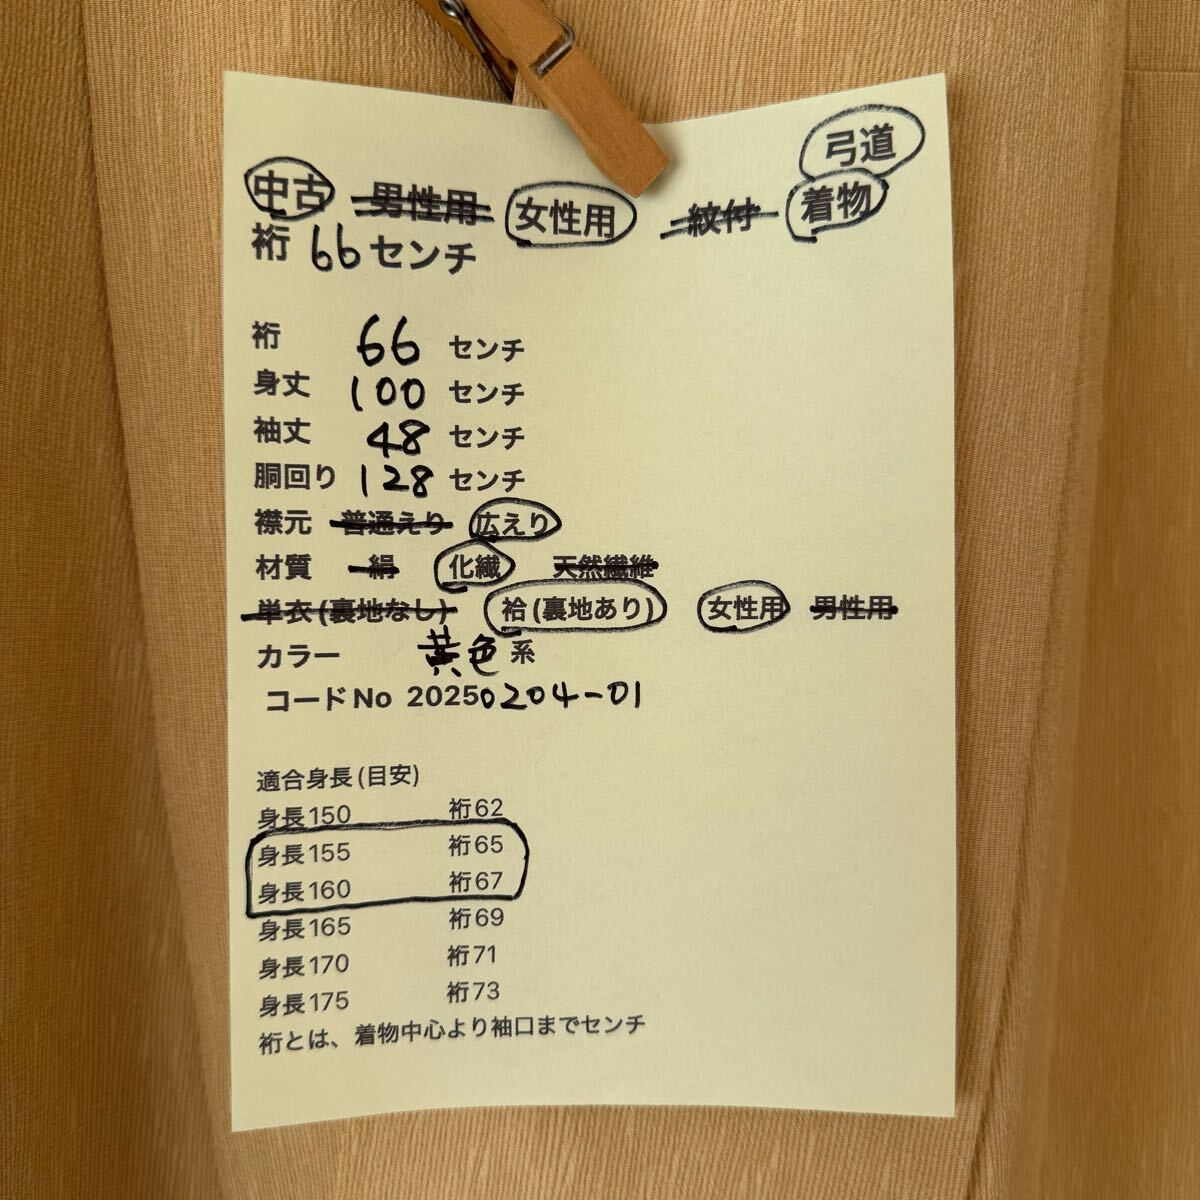 弓道
中古 男性用 女性用 紋付 着物
裄 66 センチ
裄 66 センチ
身丈 100 センチ
袖丈 48 センチ
胴回り 128 センチ
襟元 普通えり 広えり
材質 絹 化繊 天然繊維
単衣(裏地なし) 袷(裏地あり) 女性用 男性用
カラー 黄色 系
コードNo 20250204-01
適合身長(目安)
身長150 裄62
身長155 裄65
身長160 裄67
身長165 裄69
身長170 裄71
身長175 裄73
裄とは、着物中心より袖口までセンチ